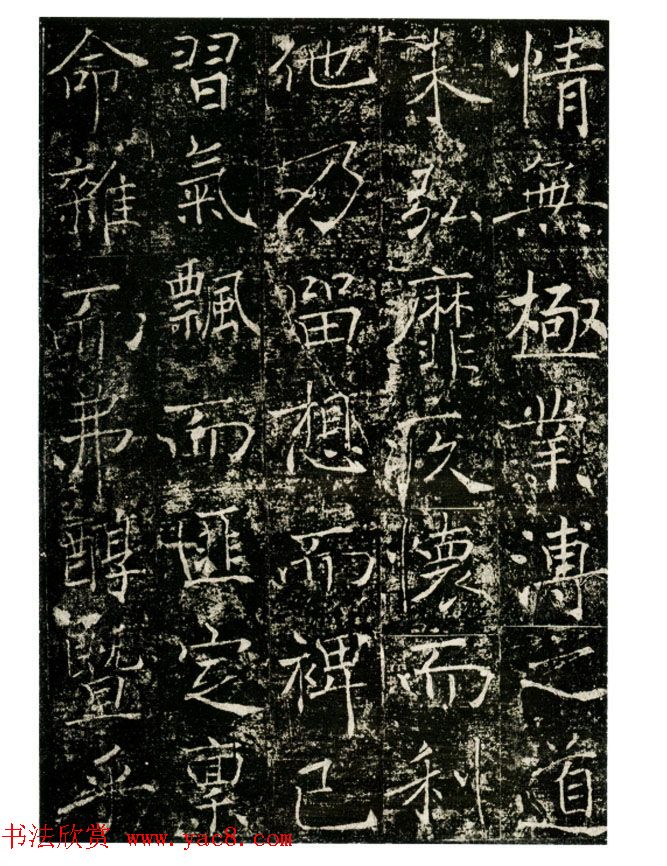 情無極業溥之道
未弘靡疚懷而利
他乃留想而裨己
習氣飄而匪定稟
命雜而弗醇暨乎
书法欣赏 www.yac8.com